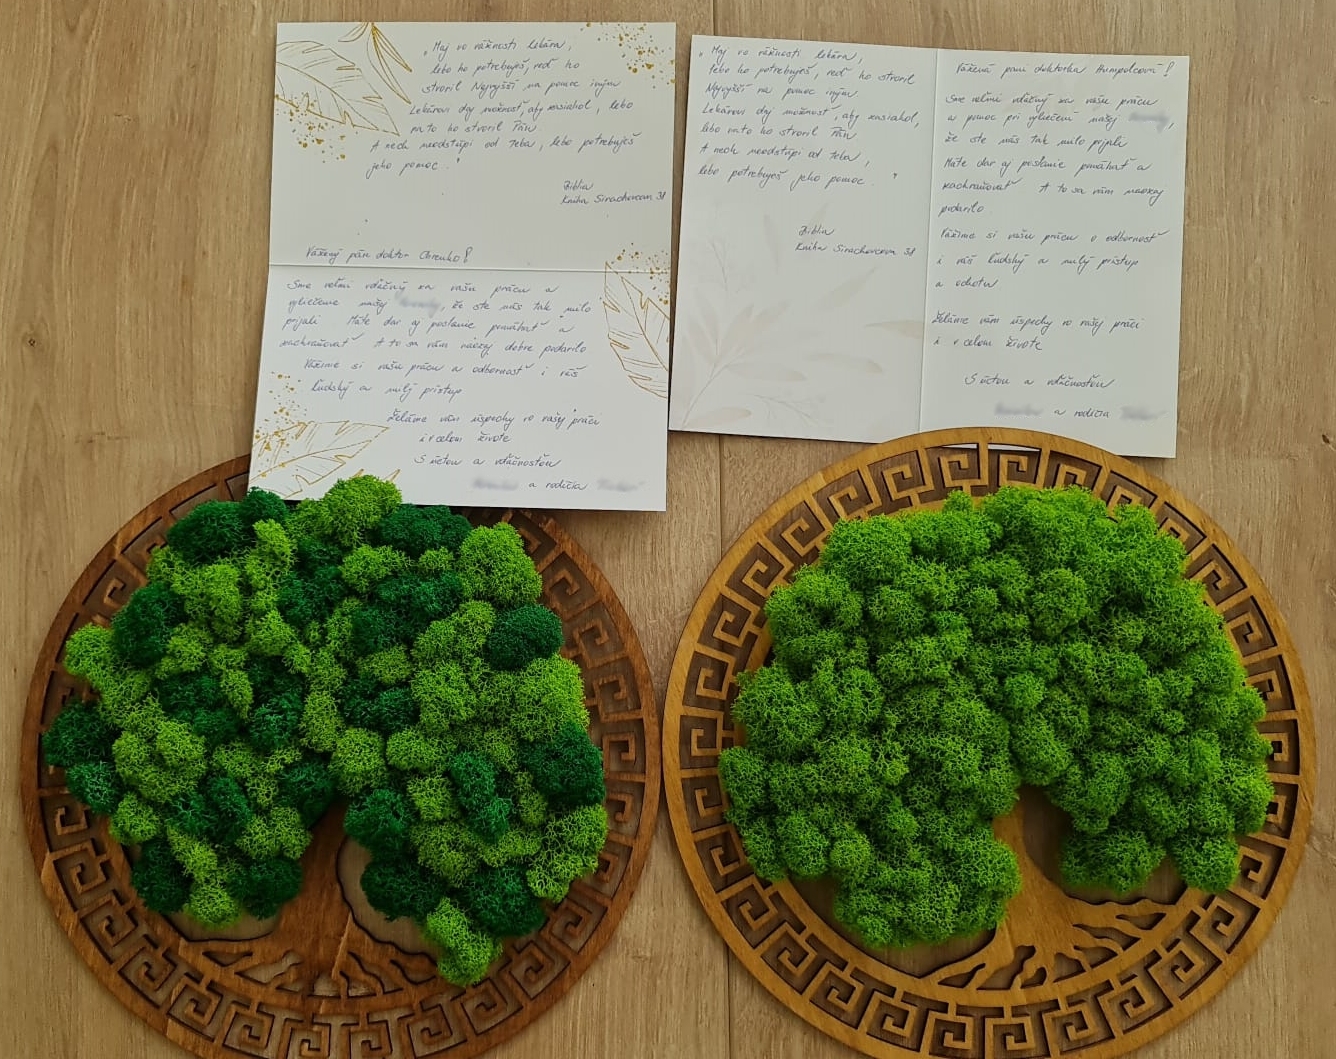 „Maj vo vážnosti lekára,
lebo ho potrebuješ, veď ho
stvoril Najvyšší na pomoc iným
Lekárovi daj možnosť, aby zasiahol, lebo
na to ho stvoril Pán
A nech neodstúpi od teba, lebo potrebuješ
jeho pomoc."
Biblia
Kniha Sirachovcova 38
Vážený pán doktor
Sme veľmi vďační za vašu prácu a
vyliečenie našej , že ste nás tak milo
prijali Máte dar aj poslanie pomáhať a
zachraňovať A to sa vám naozaj dobre podarilo
Vážime si vašu prácu a odbornosť i váš
ľudský a milý prístup
Želáme vám úspechy vo vašej práci
i v celom živote
S úctou a vďačnosťou
a rodičia
„Maj vo vážnosti lekára,
lebo ho potrebuješ, veď ho stvoril
Najvyšší na pomoc iným
Lekárovi daj možnosť, aby zasiahol,
lebo na to ho stvoril Pán
A nech neodstúpi od teba,
lebo potrebuješ jeho pomoc."
Biblia
Kniha Sirachovcova 38
Vážená pani doktorka Humpolcová!
Sme veľmi vďační za vašu prácu
a pomoc pri vyliečení našej ,
že ste nás tak milo prijali
Máte dar aj poslanie pomáhať a
zachraňovať A to sa vám naozaj
podarilo
Vážime si vašu prácu a odbornosť
i váš ľudský a milý prístup
a ochotu
Želáme vám úspechy vo vašej práci
i v celom živote
S úctou a vďačnosťou
a rodičia